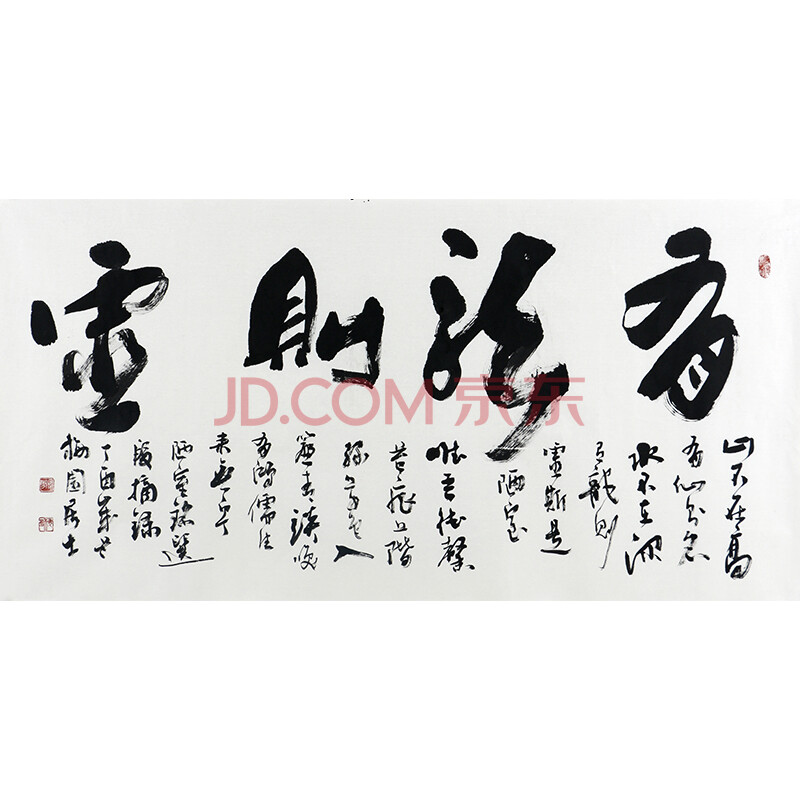 有龍則靈
山不在高
有仙則名
水不在深
有龍則
靈斯是
陋室
惟吾德馨
苔痕上階
綠草色入
簾青談笑
有鴻儒往
來無白丁
陋室銘選
段摘錄
丁酉歲
梅園居士
JD.COM 京东